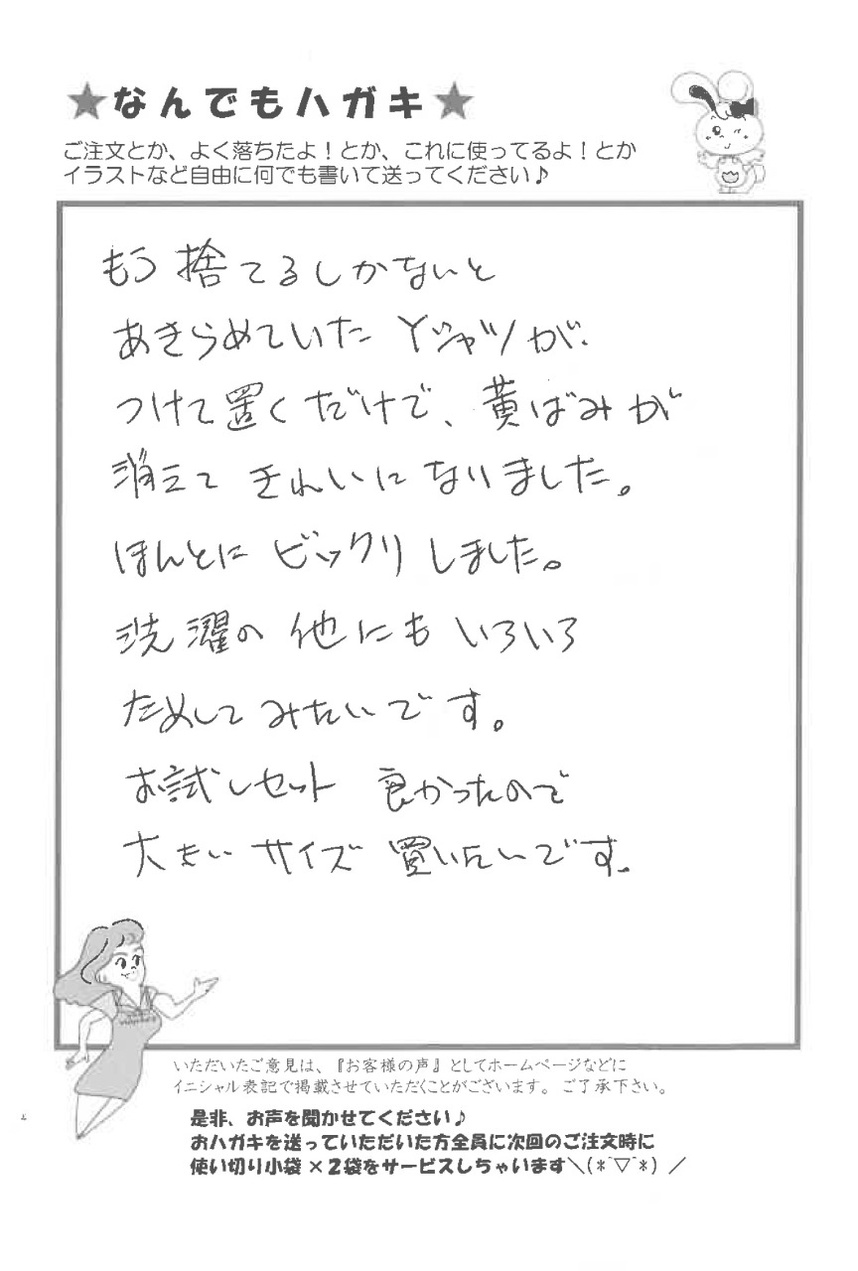 ★なんでもハガキ★
ご注文とか、よく落ちたよ！とか、これに使ってるよ！とか
イラストなど自由に何でも書いて送ってください♪
もう捨てるしかないと
あきらめていたYシャツが、
つけて置くだけで、黄ばみが
消えてきれいになりました。
ほんとにビックリしました。
洗濯の他にもいろいろ
ためしてみたいです。
お試しセット良かったので
大きいサイズ買いたいです。
いただいたご意見は、『お客様の声』としてホームページなどに
イニシャル表記で掲載させていただくことがございます。ご了承下さい。
是非、お声を聞かせてください♪
おハガキを送っていただいた方全員に次回のご注文時に
使い切り小袋×2袋をサービスしちゃいます＼(*^▽^*)／